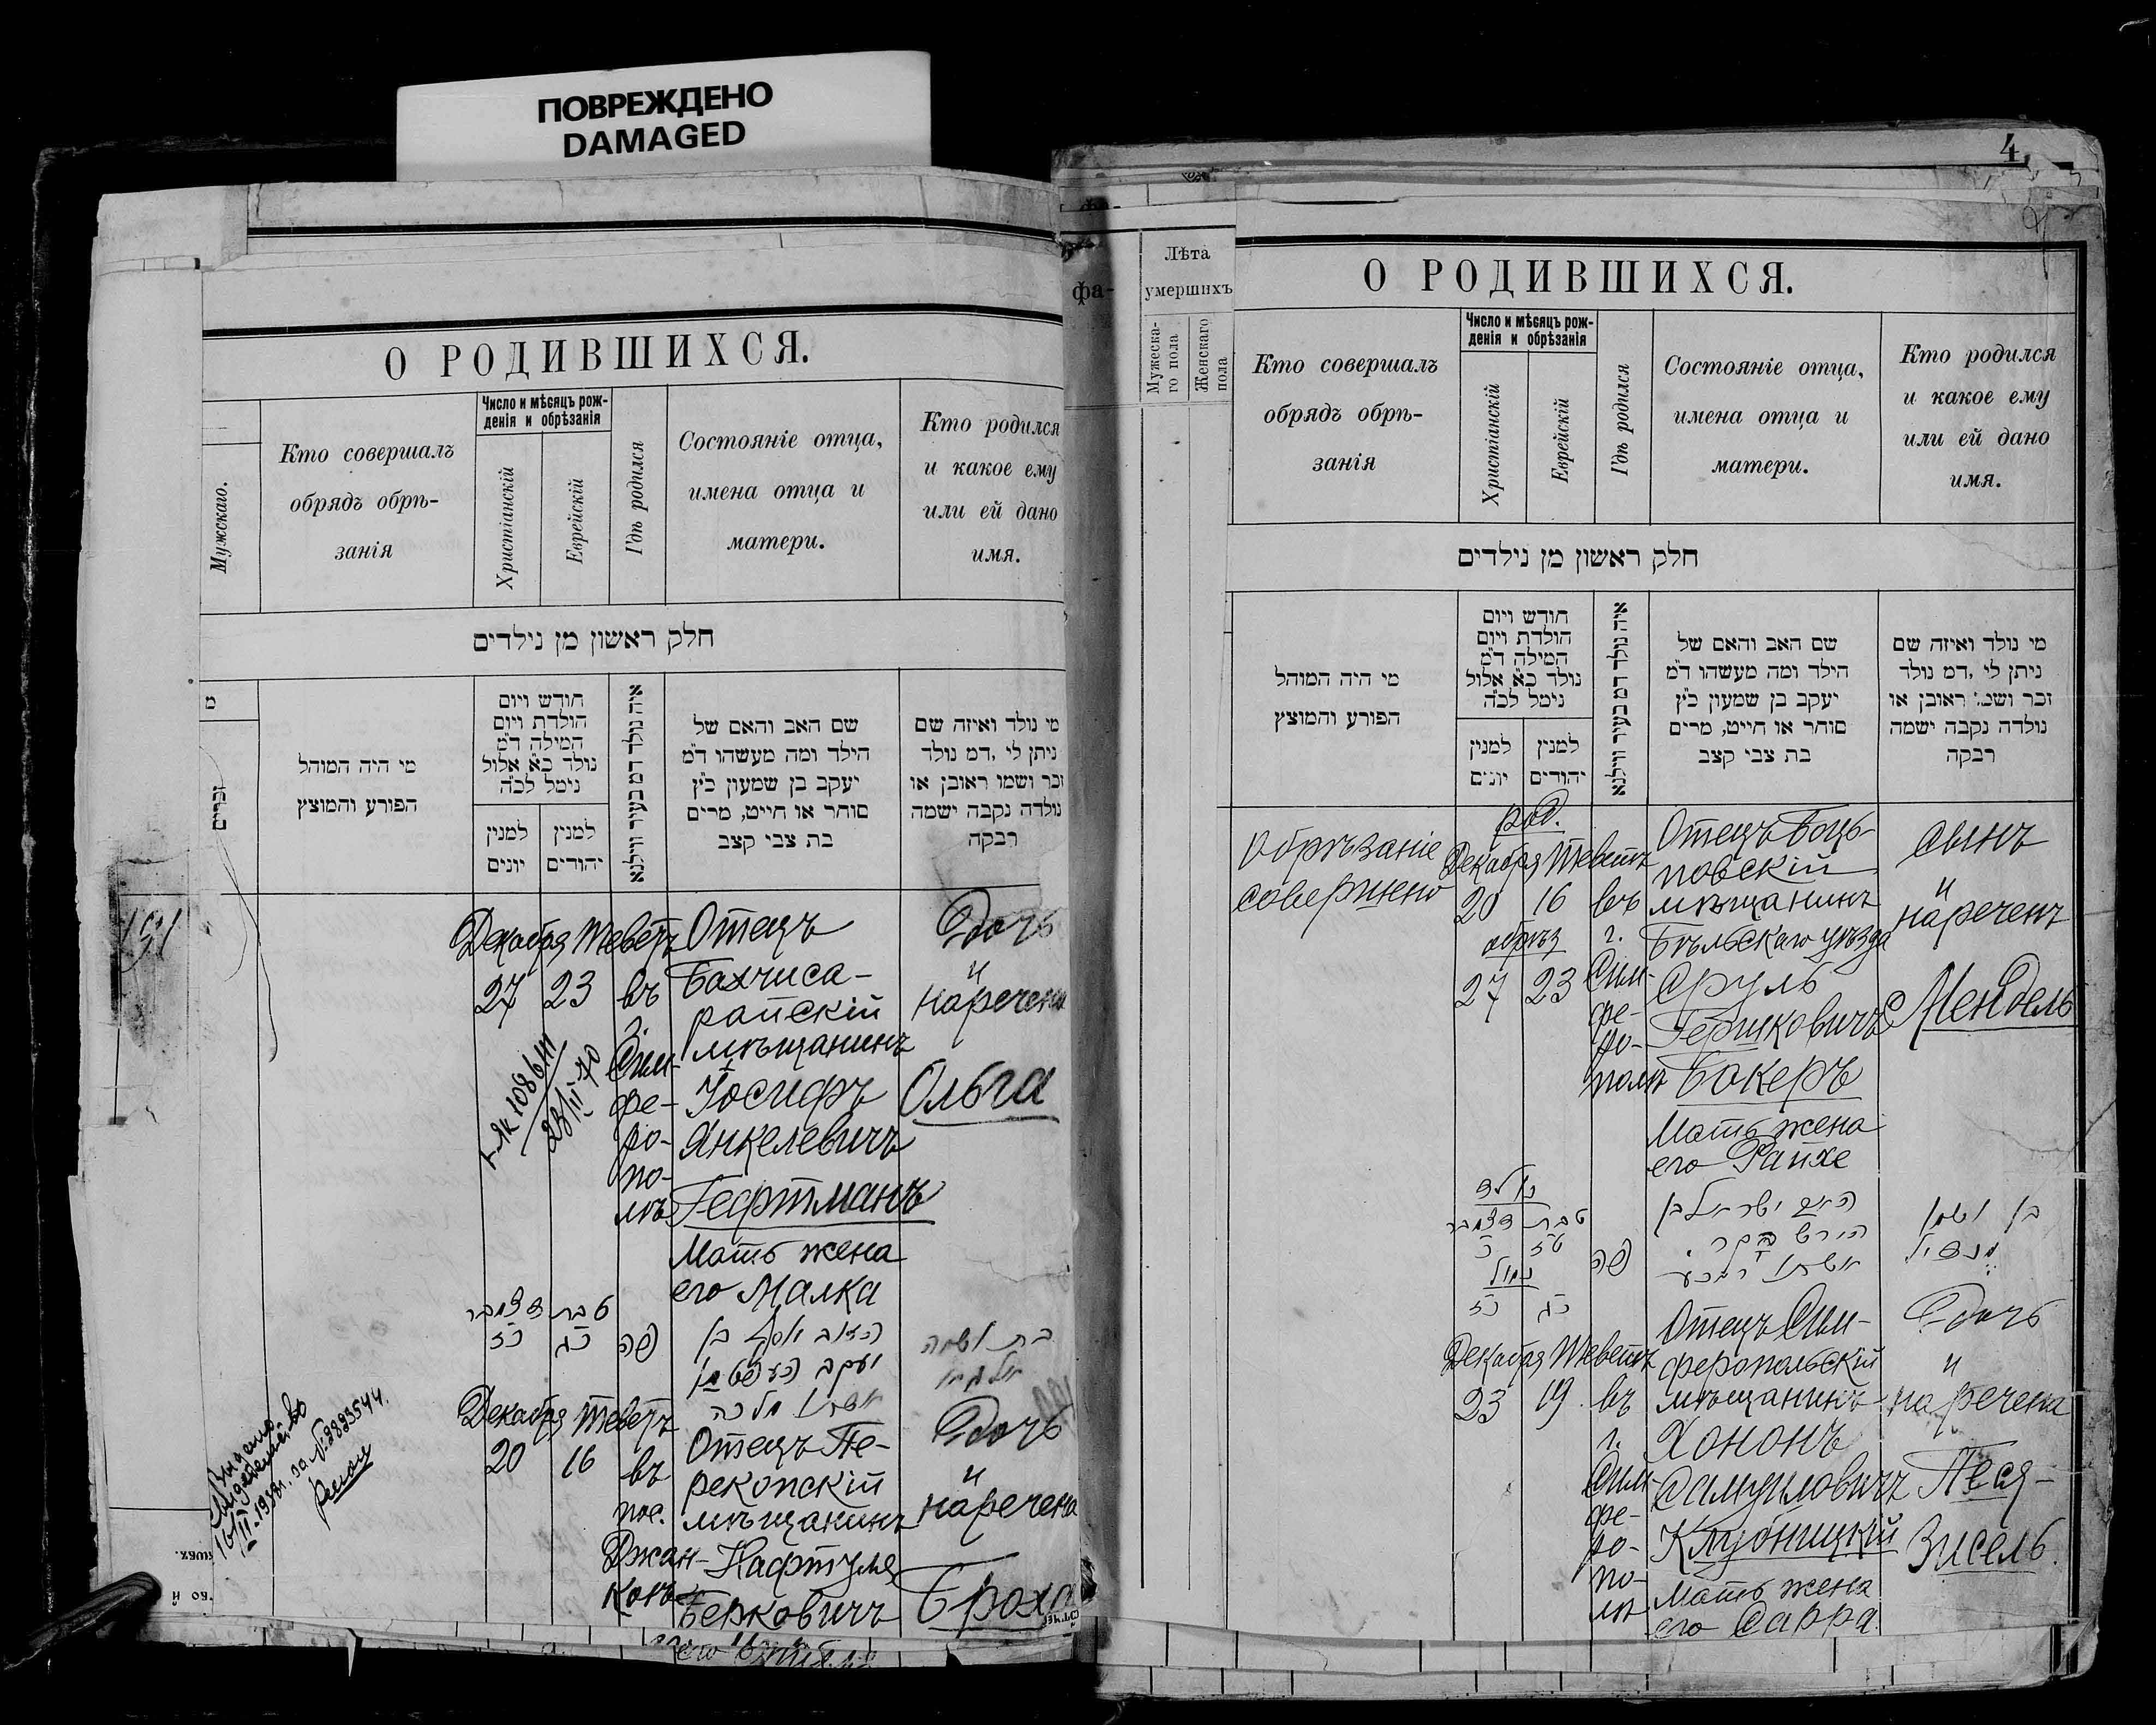 ПОВРЕЖДЕНО
DAMAGED
О РОДИВШИХСЯ.
Мужскаго.
Кто совершалъ
обрядъ обрѣ-
занія
Число и мѣсяцъ рож-
денія и обрѣзанія
Христіанскій
Еврейскій
Гдѣ родился
Состояніе отца,
имена отца и
матери.
Кто родился
и какое ему
или ей дано
имя.
חלק ראשון מן נילדים
זכרים
מי היה המוהל
הפורע והמוצץ
חודש ויום
הולדת ויום
המילה ד"מ
נולד כ"א אלול
נימל לכ"ה
למנין
יונים
למנין
יהודים
איה נולד דמ בעיר ווילנא
שם האב והאם של
הילד ומה מעשהו ד"מ
יעקב בן שמעון כ"ץ
סוחר או חייט, מרים
בת צבי קצב
מי נולד ואיזה שם
ניתן לי ,דמ נולד
זכר ושמו ראובן או
נולדה נקבה ישמה
רבקה
131
Декабря Теветъ
27 23
въ
г.
Сим-
фе-
ро-
по-
лѣ
Отецъ
Бахчиса-
райскій
мѣщанинъ
Іосифъ
Янкелевичъ
Гефтманъ
Мать жена
его Малка
Дочь
и
наречена
Ольга
108641
28/II 70
טבת דצמבר
כג כז
פה
יוסף בן
יעקב העפטמן
אשתו מלכה
בת ושמה
Декабря Теветъ
20 16
въ
пос.
Джан-
коѣ
Отецъ Пе-
рекопскій
мѣщанинъ
Нафтула
Берковичъ
Дочь
и
наречена
Броха
Выдано
свидетельство
16/II-1958г. за №3833544.
4
фа-
Лѣта
умершихъ
Мужеска-
го пола
Женскаго
пола
О РОДИВШИХСЯ.
Кто совершалъ
обрядъ обрѣ-
занія
Число и мѣсяцъ рож-
денія и обрѣзанія
Христіанскій
Еврейскій
Гдѣ родился
Состояніе отца,
имена отца и
матери.
Кто родился
и какое ему
или ей дано
имя.
חלק ראשון מן נילדים
מי היה המוהל
הפורע והמוצץ
חודש ויום
הולדת ויום
המילה ד"מ
נולד כ"א אלול
נימל לכ"ה
למנין
יונים
למנין
יהודים
איה נולד דמ בעיר ווילנא
שם האב והאם של
הילד ומה מעשהו ד"מ
יעקב בן שמעון כ"ץ
סוחר או חייט, מרים
בת צבי קצב
מי נולד ואיזה שם
ניתן לי ,דמ נולד
זכר ושמ: ראובן או
נולדה נקבה ישמה
רבקה
Обрѣзаніе
совершено
род.
Декабря Теветъ
20 16
обрѣз
27 23
въ
г.
Сим-
фе-
ро-
полѣ
Отецъ Боць-
ковскій
мѣщанинъ
Бѣльскаго уѣзда
Сруль
Гершковичъ
Бокеръ
Мать жена
его Райхе
сынъ
и
нареченъ
Мендель
נולד
טבת דצמבר
טז כ
נימול
כג כז
פה
ישראל בן
הירש בקר
אשתו
בן ושמו
מנדיל
Декабря Теветъ
23 19
въ
г.
Сим-
фе-
ро-
по-
лѣ
Отецъ Сим-
феропольскій
мѣщанинъ
Хононъ
Самуиловичъ
Клубницкій
Мать жена
его Сарра.
Дочь
и
наречена
Песя-
Зисель.